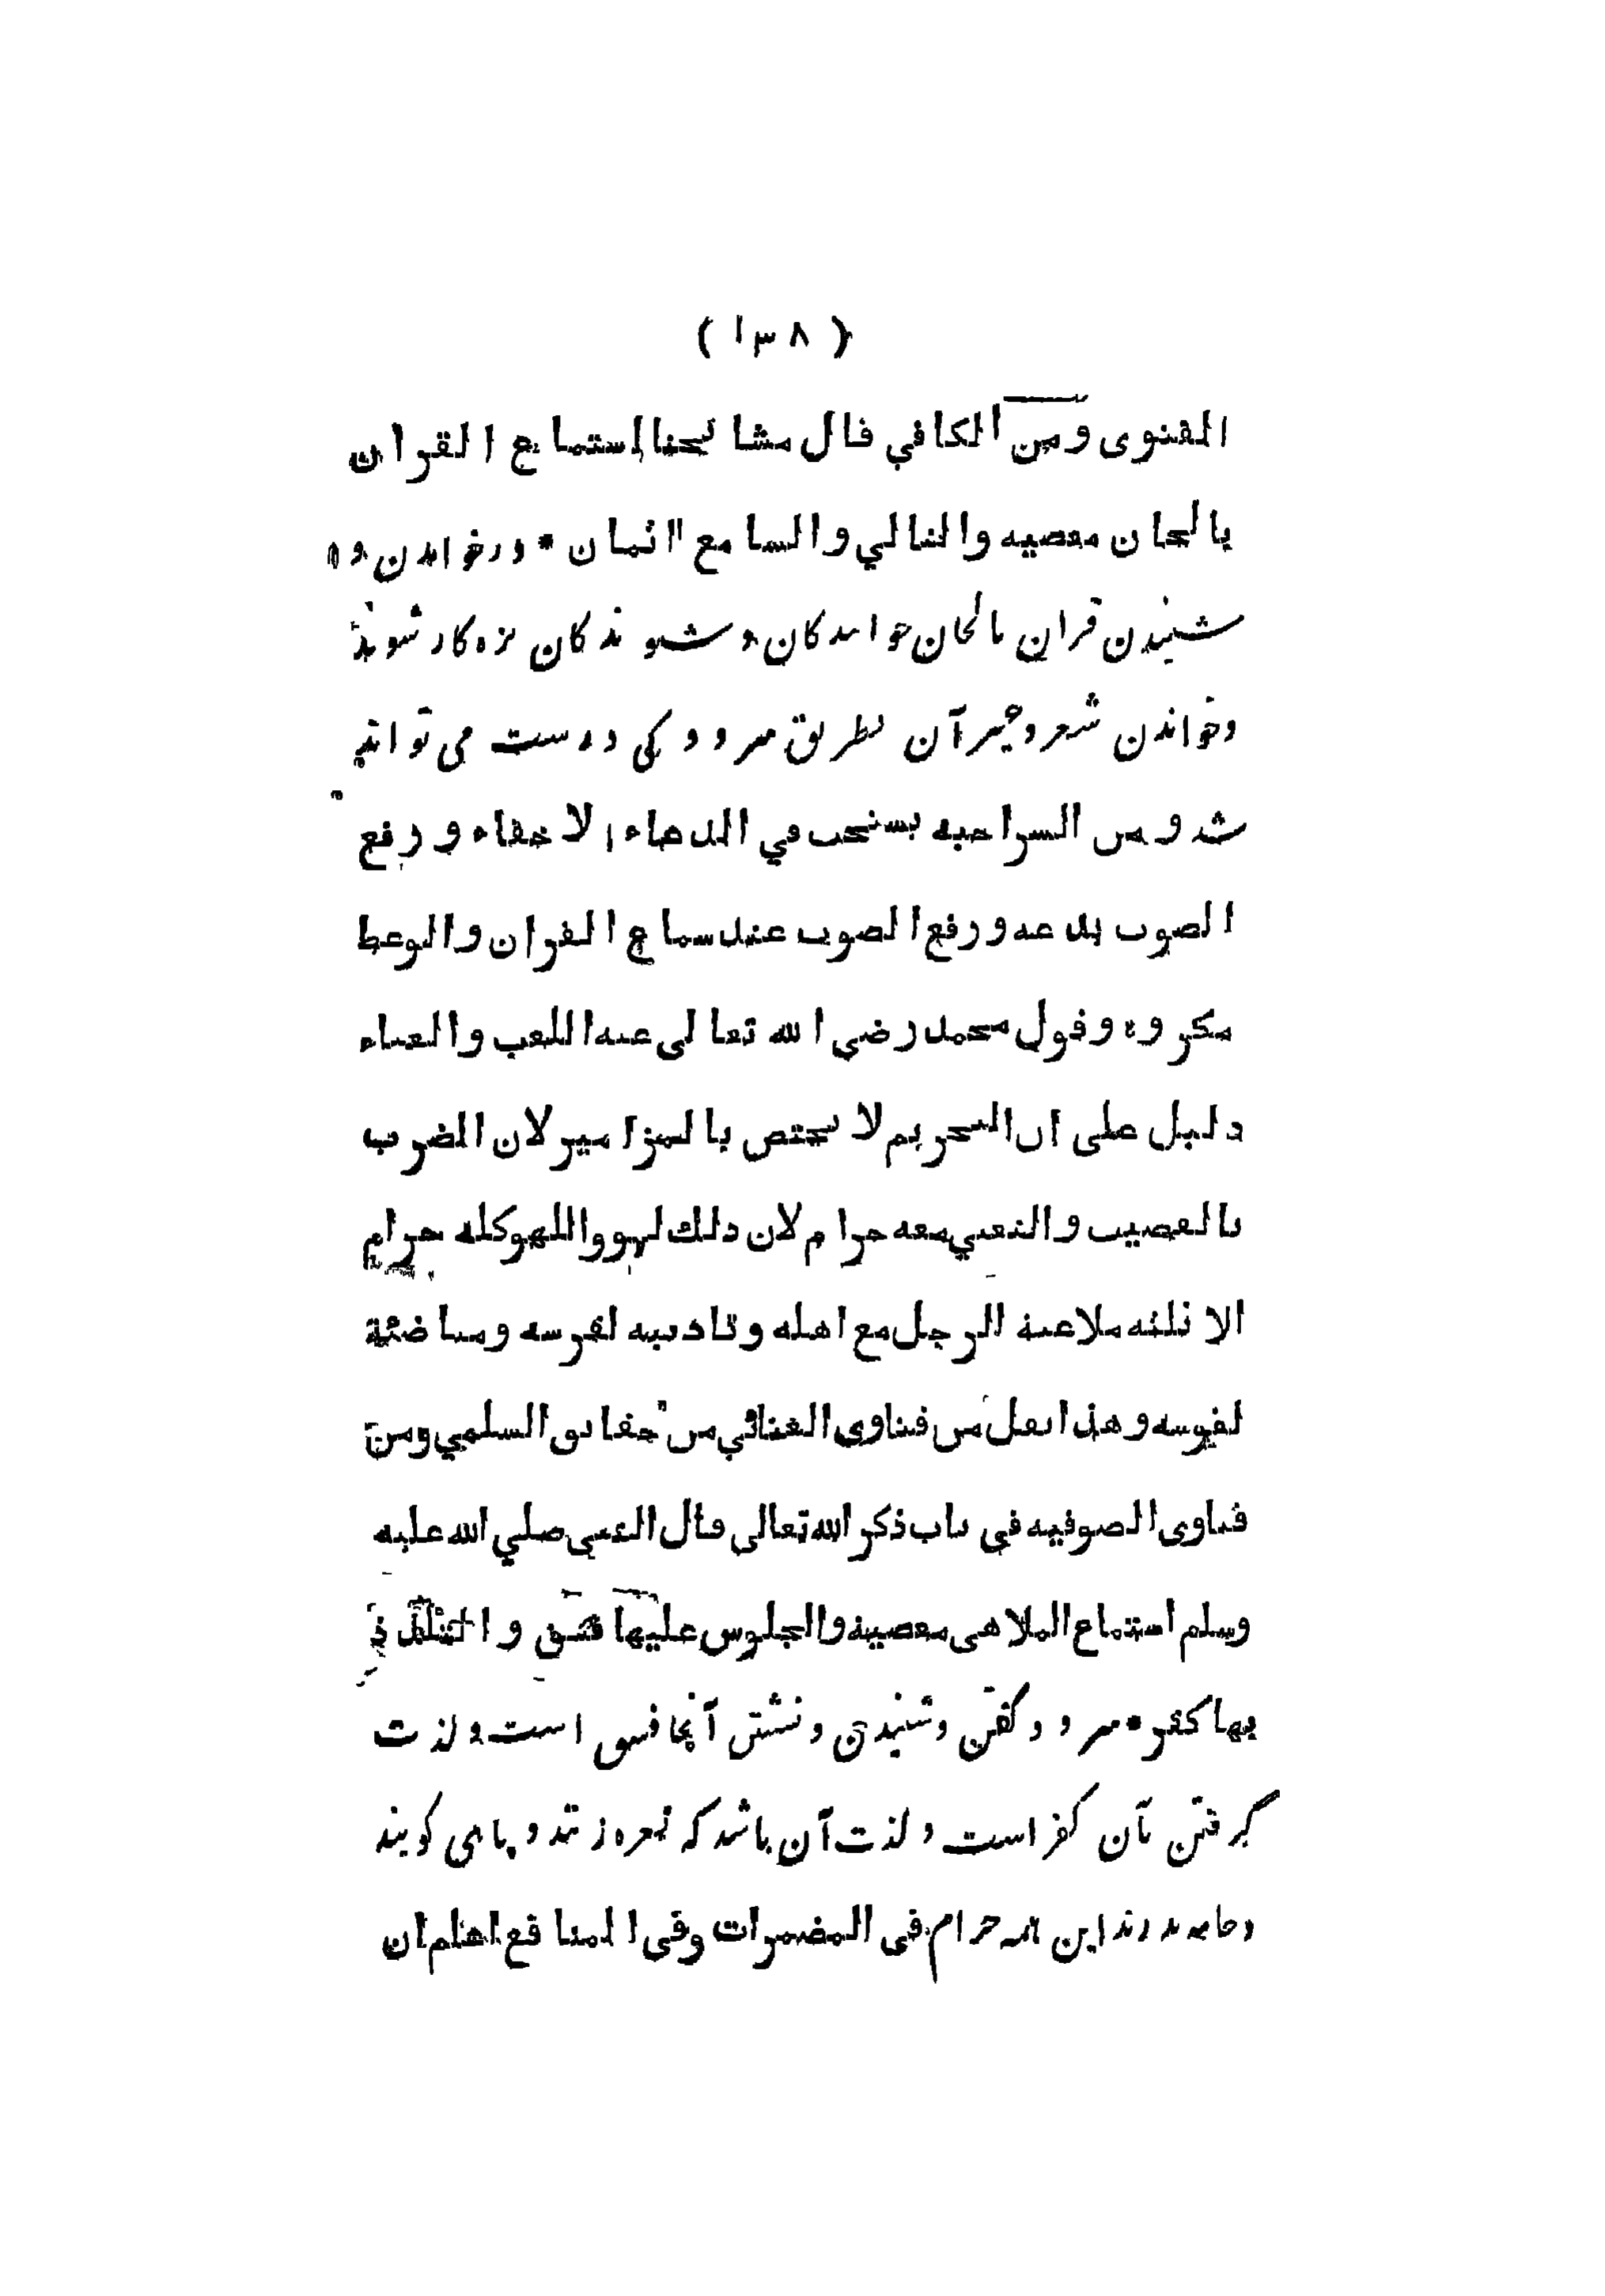 ( ١٣٨ )
الفتوى ومن الكافي قال مشايخنا استماع القران
بالحان معصيه والتالي والسامع اثمان * ورخواندن و
شنیدن قران بالحان خوانندکان و شنوندکان بزه کار شوند
وخواندن شعر وجیر آن بطریق سرود کی درست می تواند
شد ومن السراجيه يستحب في الدعاء الاخفاء ورفع
الصوت بدعه ورفع الصوت عند سماع القران والوعظ
مكروه وقول محمد رضي الله تعالى عنه اللعب والغناء
دليل على ان التحريم لا يختص بالمزامير لان الضرب
بالقصيب والتغني معه حرام لان ذلك لهو واللهو كله حرام
الا ثلثه ملاعبة الرجل مع اهله وتاديبه لفرسه ومناضلة
لقوسه وهذا نقل من فتاوى الغنائي من حقايق السلمي ومن
فتاوى الصوفيه في باب ذكر الله تعالى قال النبي صلي الله عليه
وسلم استماع الملاهى معصية والجلوس عليها فسق والتلذذ
بها كفر * سرود کفتن وشنیدن ونشستن آنجا فسق است ولذت
کرفتن بآن کفر است ولذت آن باشد که نعره زنند و پای کویند
وجامه بدرند این همه حرام في المضمرات وفي المنافع اعلم ان